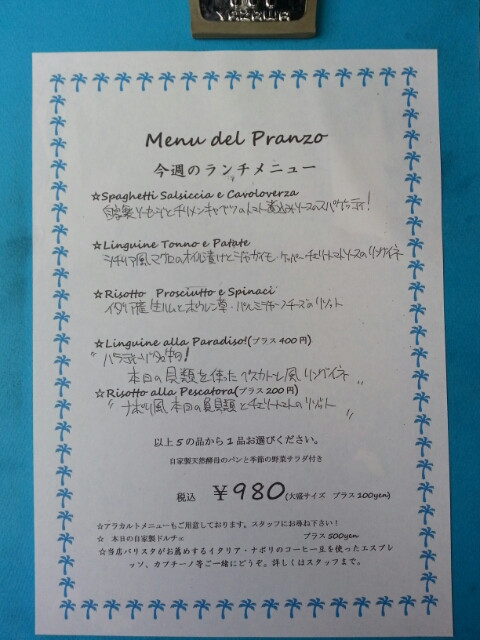 Menu del Pranzo
今週のランチメニュー
☆Spaghetti Salsiccia e Cavoloverza
自家製ソーセージとチリメンキャベツのトマト煮込みソースのスパゲッティ!
☆Linguine Tonno e Patate
シチリア風、マグロのオイル漬けとジャガイモ・ケッパー・チェリートマトソースのリングイネ
☆Risotto Prosciutto e Spinaci
イタリア産生ハムとホウレン草・パルミジャーノチーズのリゾット
☆Linguine alla Paradiso!(プラス400円)
"パラディーゾ名物!
本日の貝類を使ったペスカトーレ風リングイネ"
☆Risotto alla Pescatora(プラス200円)
"ナポリ風、本日の魚貝類とチェリートマトのリゾット"
以上5の品から1品お選びください。
自家製天然酵母のパンと季節の野菜サラダ付き
税込 ¥980(大盛サイズ プラス100yen)
☆アラカルトメニューもご用意しております。スタッフにお尋ね下さい!
☆ 本日の自家製ドルチェ プラス500yen
☆当店バリスタがお薦めするイタリア・ナポリのコーヒー豆を使ったエスプレ
ッソ、カプチーノ等ご一緒にどうぞ。詳しくはスタッフまで。